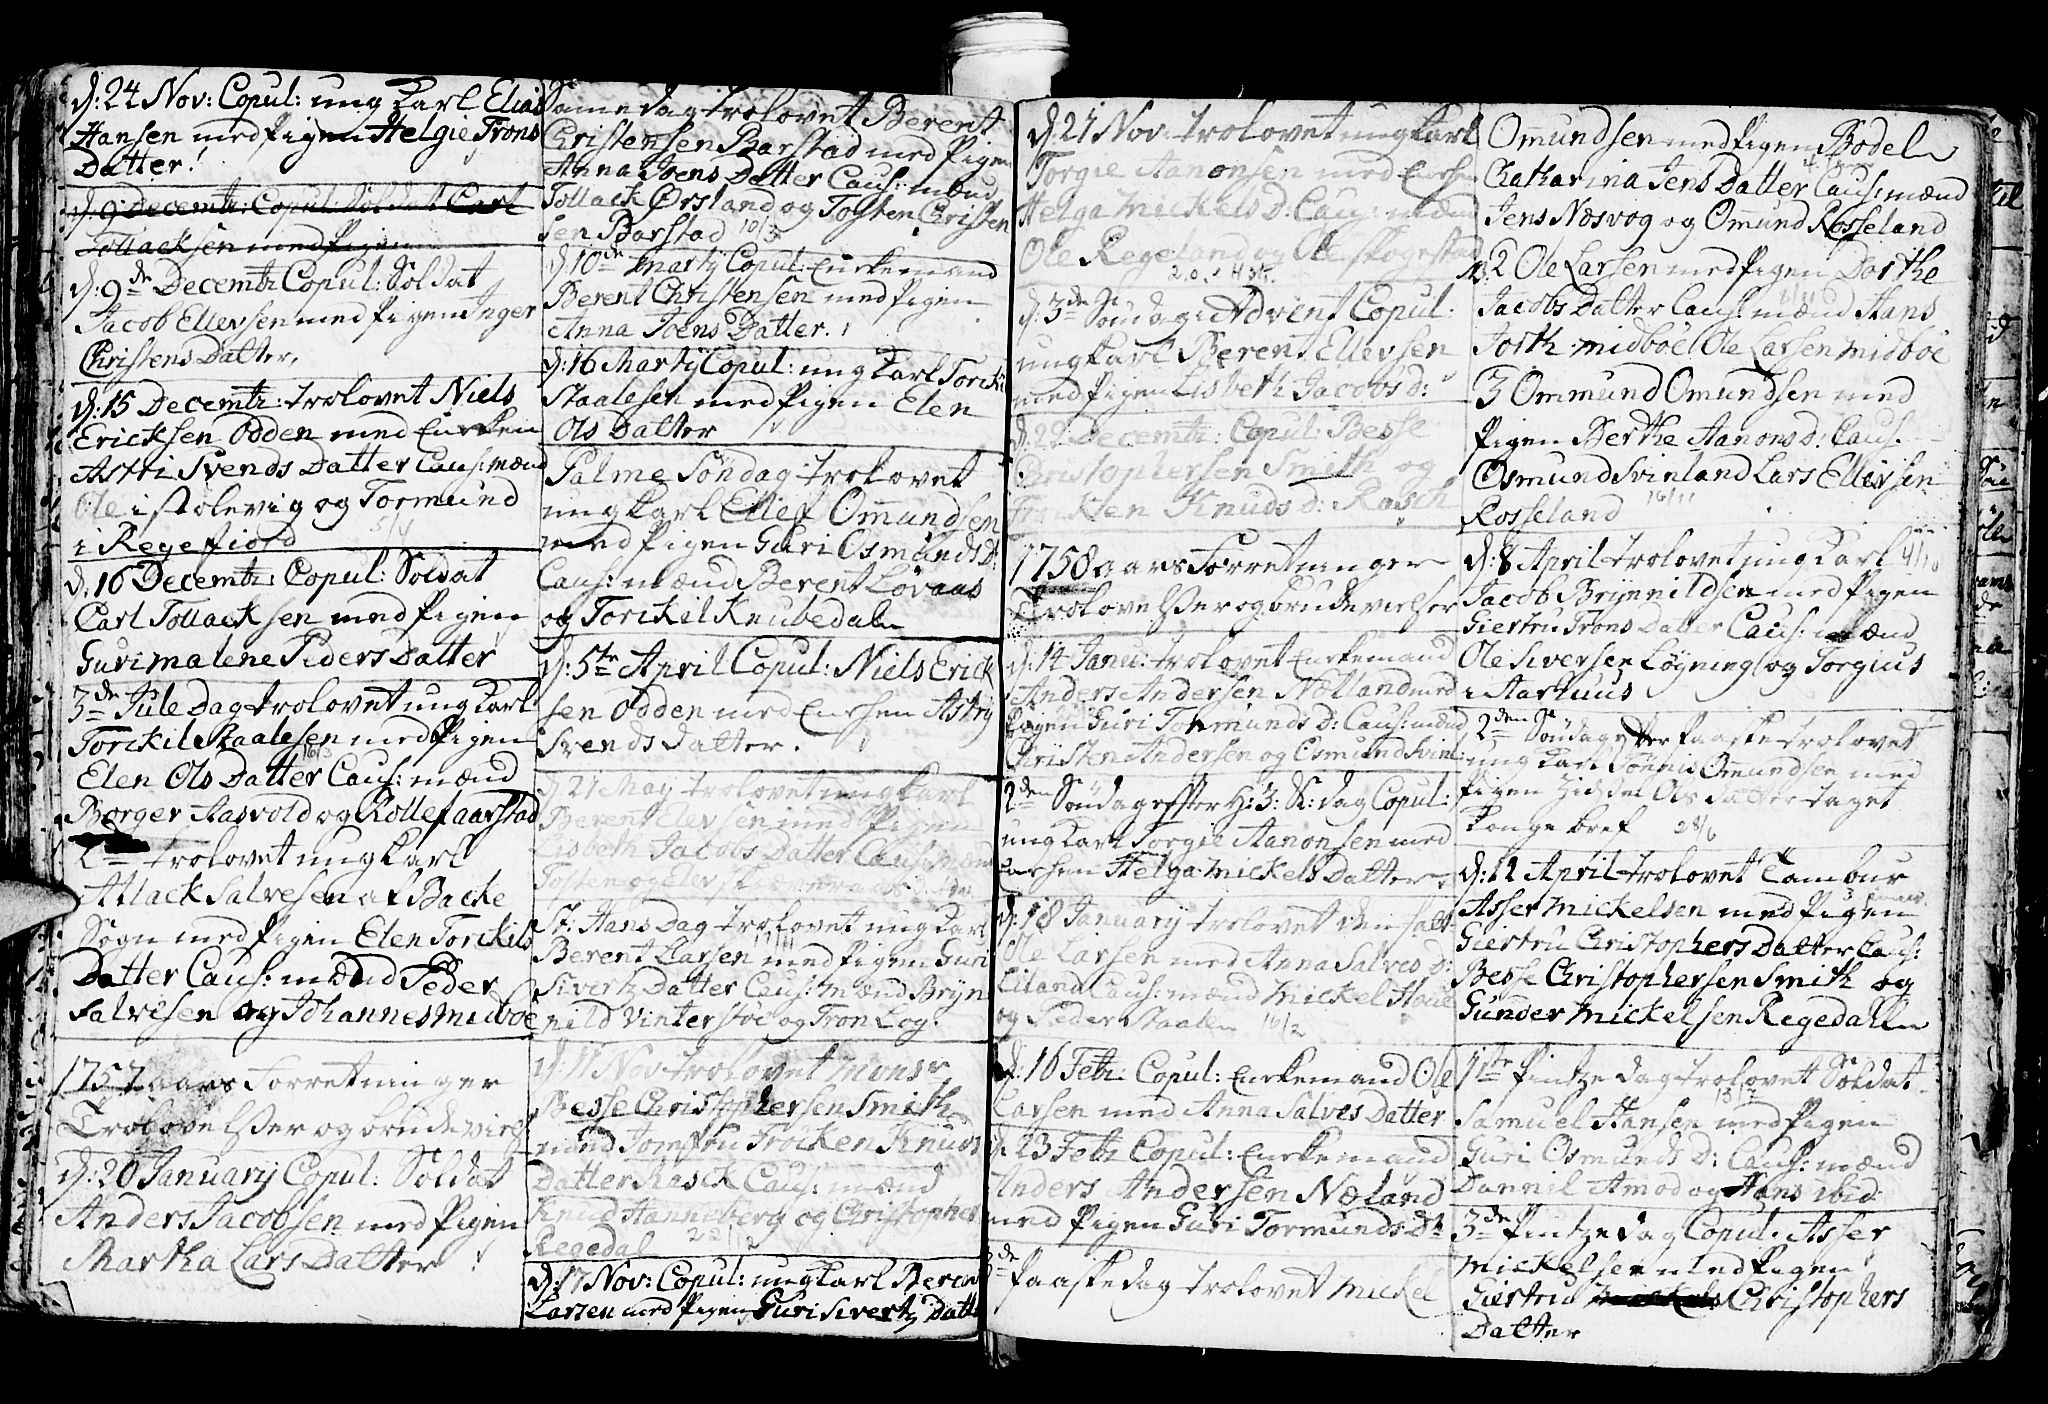 d: 24 Nov: Copul: ung Karl Elias
Hansen med Pigen Helgie Trons
Datter!
d: 9 Decembr: Copul: Soldat Carl
Tollacksen med Pigen
d: 9de Decembr Copul: Soldat
Jacob Ellevsen med Pigen Inger
Christens Datter,
d: 15 Decembr: trolovet Niels
Ericksen Odden med Enken
Astri Svends Datter Caus: mænd
Ole i Stolevig og Tormund
i Regefiord 5/4
d. 16 Decembr: Copul: Soldat
Carl Tollacksen med Pigen
Guri malene Peders Datter
3de Jule Dag trolovet ung Karl
Torckil Staalesen med Pigen
16/3
Elen Ols Datter Caus: mænd
Borger Aasvold og Rollef aarstad
trolovet ung Karl
Atlack Salvesen af Backe
Sogn med Pigen Elen Torckils
Datter Caus: mænd Peder
Salvesen og Johannes midboe
1757 aars Forretninger
Trolovelsser og brudeviels
d: 20 January Copul: Soldat
Anders Jacobsen med Pigen
Martha Lars Datter
Same dag trolovet Berent
Christensen Barstad med Pigen
Anna Joens Datter Caus: mænd
Tollack Ørsland og Tosten Christen
sen Barstad 10/3
d 10de Martij Copul: Enkemand
Berent Christensen med Pigen
Anna Joens Datter.
d: 16 Martij Copul: ung Karl Torckil
Staalesen med Pigen Elen
Ols Datter
Palme Söndag trolovet
ung Karl Ellef Omundsen
med Pigen Guri Osmunds D:
Caus: mænd Berent Lövaas
og Torckil Knubedal
d: 5te April Copul: Niels Erick
sen Odden med Enken Astry
Svends datter.
d 21 May trolovet ung Karl
Berent Elevsen med Pigen
Lisbeth Jacobs Datter Caus: mænd
Tosten og Elev Skaveraas
St: Hans Dag trolovet ung Karl
17/11
Berent Larsen med Pigen Guri
Sivertz Datter Caus: mænd Bryn
nild Vinterstöe og Tron Log.
d: 11 Nov trolovet Monsr
Besse Christophersen Smith
med Jomfru Fröcken Knuds
Datter Rasck Caus: mænd
Knud Hanneberg og Christopher
Regedal 22/12
d: 17 Nov: Copul: ung Karl Berent
Larsen med Pigen Guri Sivertz Datter
d: 21 Nov: trolovet ung Karl
Torgie Aanonsen med Enken
Helga Mickels D: Caus: mænd
Ole Regeland og Ole Skogestad
d: 3de Söndag i Advent Copul:
ung Karl Berent Ellevsen
med Pigen Lisbeth Jacobs d:
d. 22 Decembr: Copul: Besse
Christophersen Smith og
Fröcken Knuds d: Rasch
1758 aars Forretninger
Trolovelsser og brudevielser
d: 14 Janu: trolovet Enkemand
Anders Andersen Nælland med
Pigen Guri Tormunds D: Caus: mænd
Christen Andersen og Osmund Svinl:
2den Söndag efter H: 3: K: dag Copul:
ung Karl Torgie Aanonsen med
Enken Helga Mickels Datter
d: 18 January trolovet
Ole Larsen med Anna Salves D:
Eiland Caus: mænd Mickel
og Peder Staalen 16/2
d: 16 Febr: Copul: Enkemand Ole
Larsen med Anna Salves Datter
d: 23 Febr Copul: Enkemand
Anders Andersen Næland
med Pigen Guri Tormunds Dr
3de Paaskedag trolovet Mickel
Omundsen med Pigen Bodel
Chatharina Jens Datter Caus: mænd
Jens Nesvog og Omund Rosseland
No: 2 Ole Larsen med Pigen Dorthe
Jacobs Datter Caus: mænd Hans
Jorth: midboe Ole Larsen midboe
3 Ommund Omundsen med
Pigen Berthe Aanons d: Caus.
Osmund Svinland Lars Ellevsen
Rosseland 16/11
d: 8 April trolovet ung Karl
Jacob Brynnildsen med Pigen
Giertru Trons Datter Caus: mænd
Ole Siversen Løgning og Torgius
i Aarhuus
2den Söndag efter Paaske trolovet
ung Karl Tönnes Omundsen med
Pigen Zidsel Ols datter taget
Konge bref 28/6
d: 12 April trolovet Tambur
Asser Mickelsen med Pigen
Giertru Christophers Datter Caus:
Besse Christophersen Smith og
Gunder Mickelsen Regedahl
1ste Pintze dag trolovet Soldat
13/7
Samuel Hansen med Pigen
Guri Osmunds D: Caus: mænd
Dannil Amod og Hans ibid:
3de Pintze dag Copul: Asser
Mickelsen med Pigen
Giertru Christophers
Datter